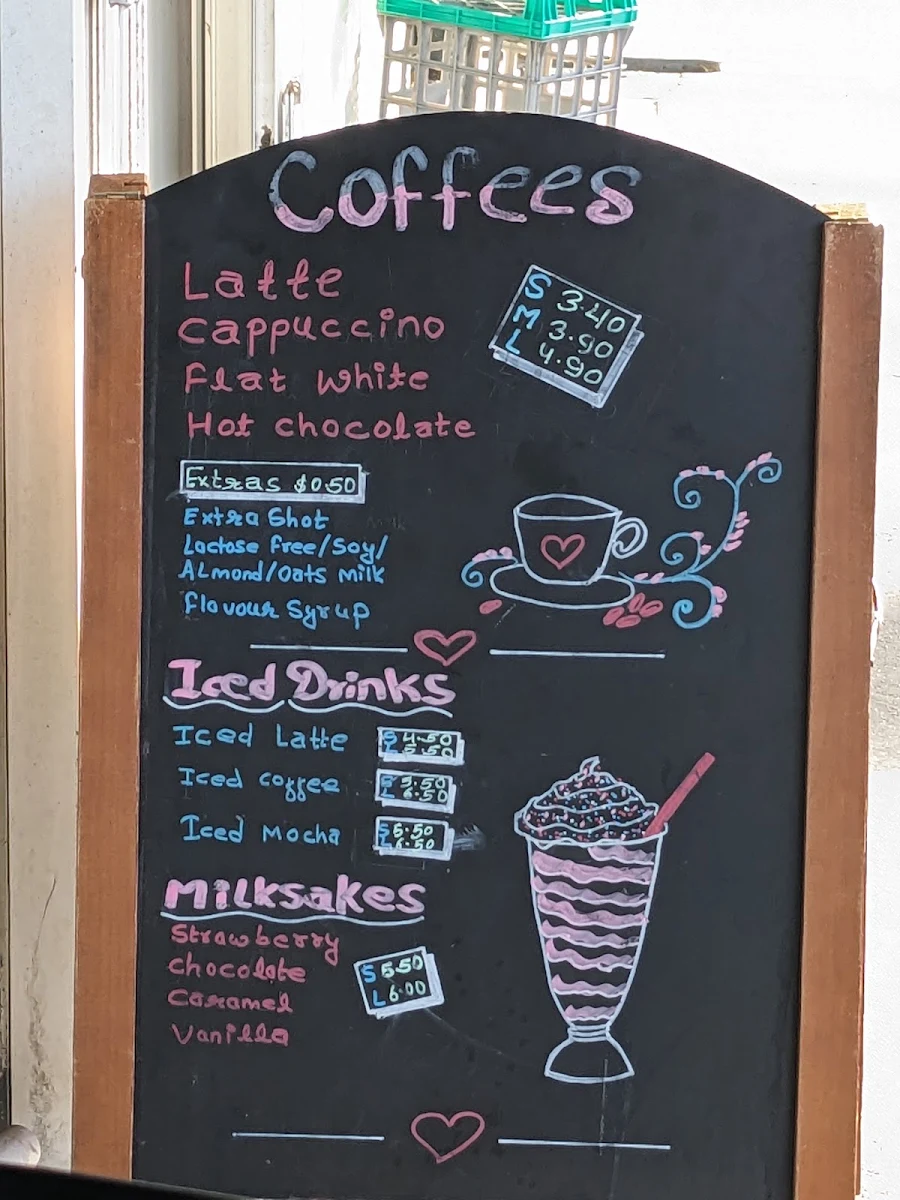 Coffees
Latte
Cappuccino
Flat White
Hot chocolate
S 3.40
M 3.90
L 4.90
Extras $0.50
Extra Shot
Lactose free/Soy/
Almond/Oats milk
flavour Syrup
Iced Drinks
Iced Latte S 4.50
L 5.50
Iced coffee S 5.50
L 6.50
Iced Mocha S 5.50
L 6.50
Milksakes
Strawberry
chocolate
Caramel
Vanilla
S 5.50
L 6.00